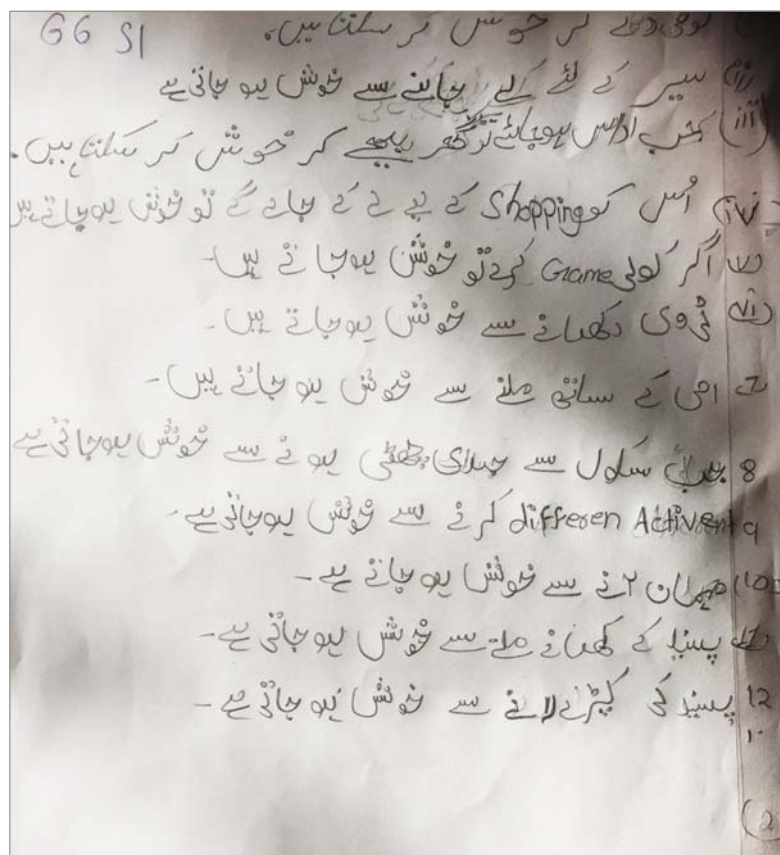 GG S1
کر خوش کر سکتا ہیں.
(ii) سیر کے لئے لے جانے سے خوش ہو جاتی ہے
(iii) جب اداس ہو جائے تو گھر بھیج کر خوش کر سکتا ہیں.
(iv) اُس کو Shopping کے لے جائے گے تو خوش ہو جاتے ہیں
(v) اگر کوئی Game کرے تو خوش ہو جاتے ہیں-
(vi) ٹی وی دکھانے سے خوش ہو جاتے ہیں-
7 امی کے ساتھ ملنے سے خوش ہو جاتے ہیں-
8 سکول سے جلدی چھٹی ہونے سے خوش ہو جاتی ہے
9 differen Activent کرنے سے خوش ہو جاتی ہے-
(10 مہمان آنے سے خوش ہو جاتے ہے-
پسند کے کھانے ملنے سے خوش ہو جاتی ہے-
12 پسند کی کپڑے لانے سے خوش ہو جاتی ہے-
(2